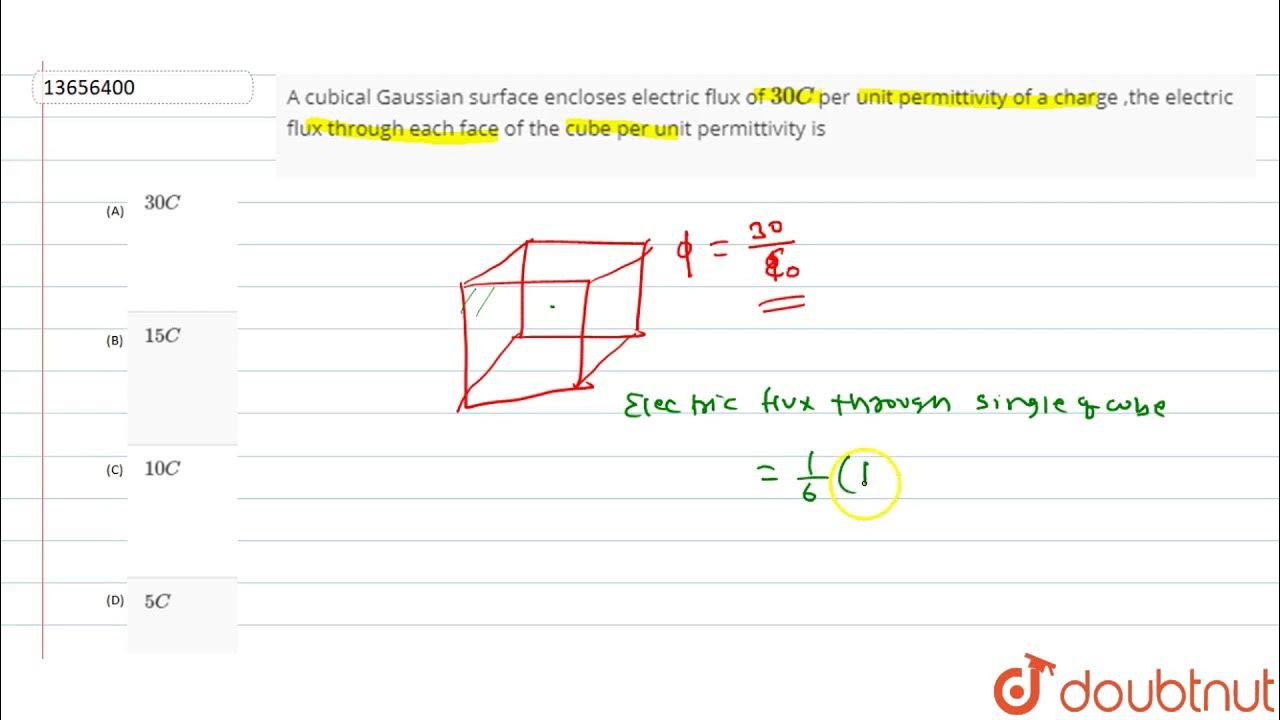 13656400
A cubical Gaussian surface encloses electric flux of 30C per unit permittivity of a charge ,the electric
flux through each face of the cube per unit permittivity is
(A) 30C
(B) 15C
(C) 10C
(D) 5C
ϕ = 30/ε0
Electric flux through single of cube
= 1/6 (
doubtnut